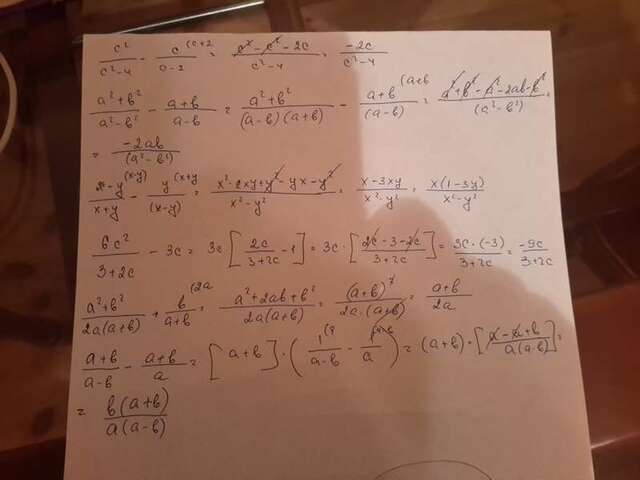 c²/(c²-4) - c/(c-2) (c+2 = (c²-c²-2c)/(c²-4) = -2c/(c²-4)
(a²+b²)/(a²-b²) - (a+b)/(a-b) = (a²+b²)/((a-b)(a+b)) - (a+b)/(a-b) (a+b = (a²+b²-a²-2ab-b²)/(a²-b²) =
= -2ab/(a²-b²)
(x-y)/(x+y) (x-y) - y/(x-y) (x+y = (x²-2xy+y²-yx-y²)/(x²-y²) = (x-3xy)/(x²-y²) = x(1-3y)/(x²-y²)
6c²/(3+2c) - 3c = 3c [2c/(3+2c) - 1] = 3c · [(2c-3-2c)/(3+2c)] = 3c·(-3)/(3+2c) = -9c/(3+2c)
(a²+b²)/(2a(a+b)) + b/(a+b) (2a = (a²+2ab+b²)/(2a(a+b)) = (a+b)²/(2a·(a+b)) = (a+b)/2a
(a+b)/(a-b) - (a+b)/a = [a+b] · (1/(a-b) (a - 1/a (a-b) = (a+b) · [(a-a+b)/(a(a-b))] =
= b(a+b)/(a(a-b))